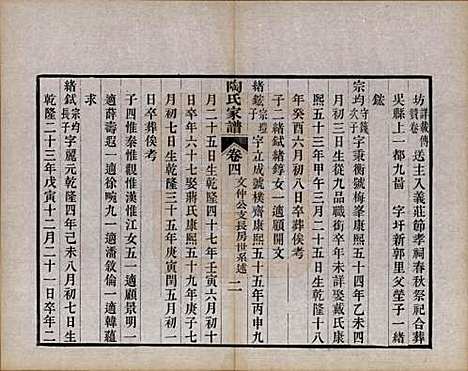 坊 詳載傳贊卷 送主入義莊節孝祠春秋祭祀合葬
吳縣上一都九啚 字圩新郭里父塋子一緒
鋐
宗均 守錢次子 字秉衡號梅峯康熙五十四年乙未四
月初三日生從九品職銜卒年未詳娶戴氏康
熙五十三年甲午三月二十五日生乾隆十八
年癸酉六月初八日卒葬俟考
子二緒鉽緒錞女一適顧開文
緒鋐 宗堪子 字立成號樸齋康熙五十五年丙申九
陶氏家譜 卷四 文仲公支長房世系述 二
月二十五日生乾隆四十七年壬寅六月初十
日卒娶蔣氏康熙五十九年庚子七
月初七日生乾隆三十五年庚寅閏五月初一
日卒葬俟考
子四惟泰惟觀惟漢惟江女四一適顧景明一
適薛壽遐一適徐晥九一適潘敘倫一適韓蘊
求
緒鉽 宗均長子 字麗元乾隆四年己未八月初七日生
乾隆二十三年戊寅十二月二十一日卒年二